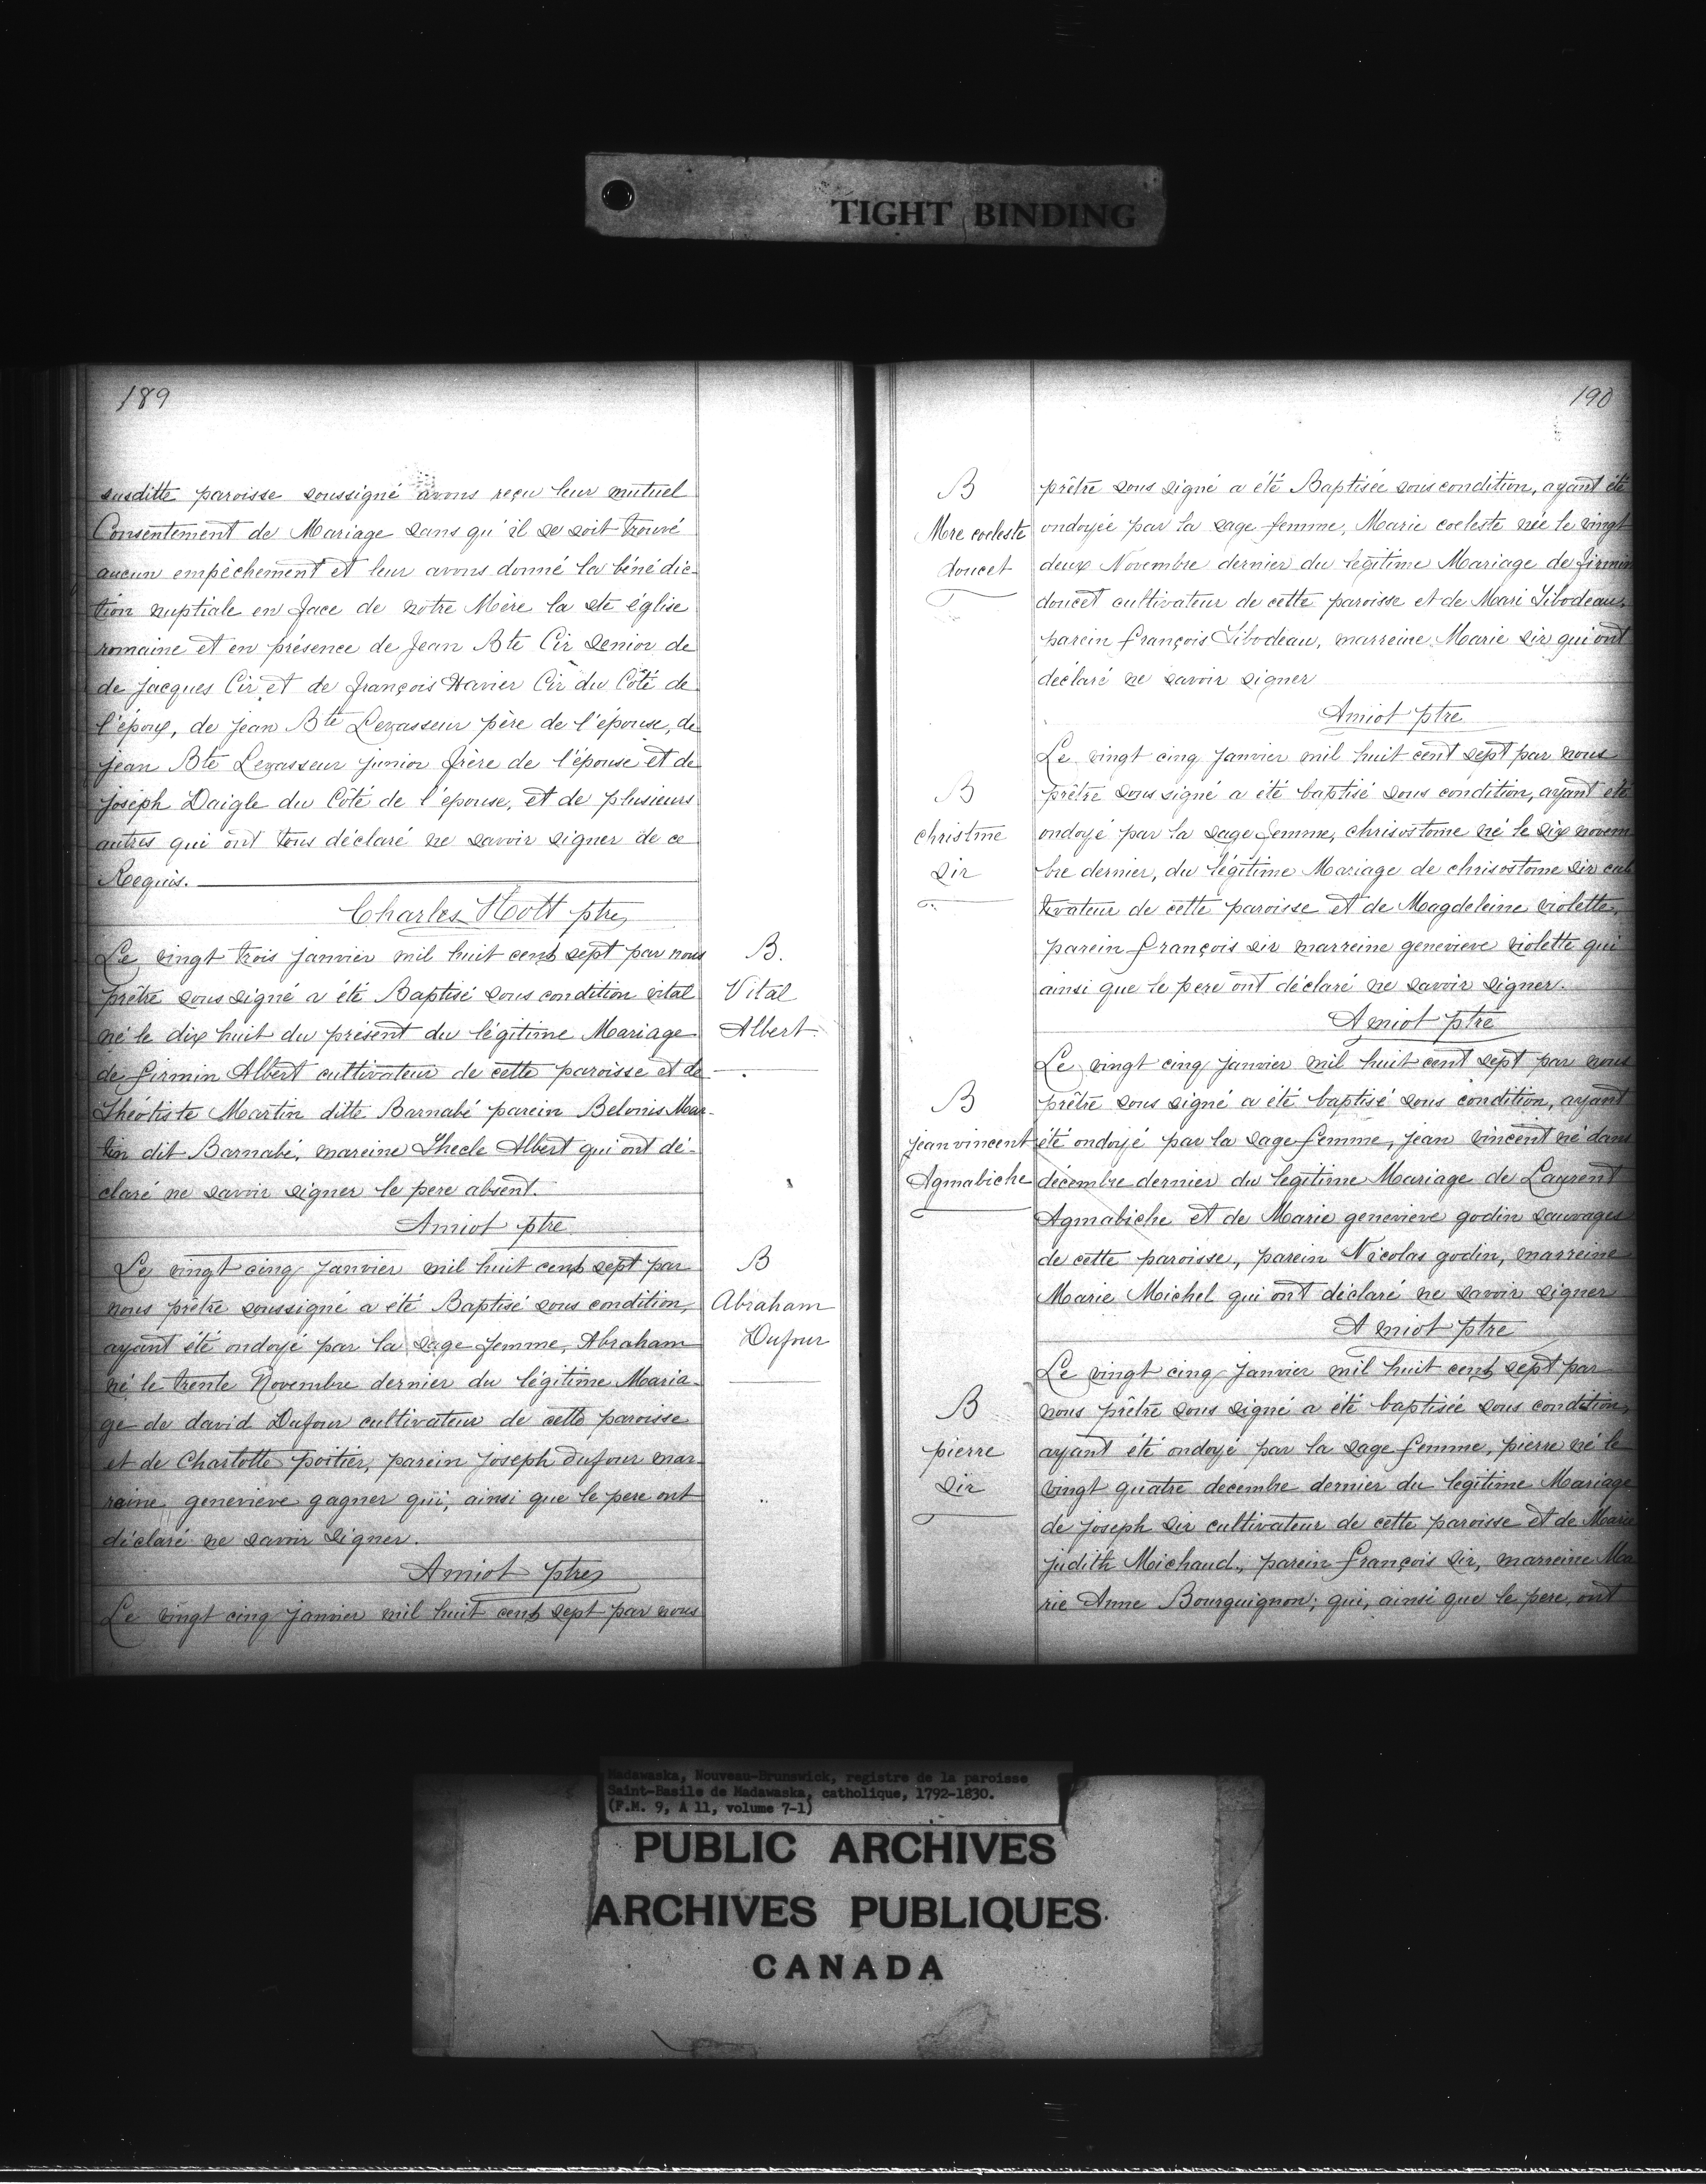 TIGHT BINDING
189
susditte paroisse soussigné avons reçu leur mutuel
Consentement de Mariage sans qu'il se soit trouvé
aucun empêchement et leur avons donné la bénédic-
tion nuptiale en face de notre Mère la ste église
romaine et en présence de Jean Bte Cir senior de
de Jacques Cir et de françois Xavier Cir du Côté de
l'époux, de jean Bte Levasseur père de l'épouse, de
jean Bte Levasseur junior frère de l'épouse et de
joseph Daigle du Côté de l'épouse, et de plusieurs
autres qui ont tous déclaré ne savoir signer de ce
Requis.
Charles Hott ptre
Le vingt trois janvier mil huit cent sept par nous
prêtre sous signé a été Baptisé sous condition vital
né le dix huit du présent du légitime Mariage
de firmin Albert cultivateur de cette paroisse et de
Théotiste Martin ditte Barnabé parein Belonis Mar-
tin dit Barnabé, mareine Thecle Albert qui ont dé-
claré ne savoir signer le pere absent.
Amiot ptre
Le vingt cinq janvier mil huit cent sept par
nous prêtre soussigné a été Baptisé sous condition,
ayant été ondoyé par la sage femme, Abraham
né le trente Novembre dernier du légitime Maria-
ge de david Dufour cultivateur de cette paroisse
et de Charlotte poitier, parein joseph dufour mar-
reine genevieve gagner qui, ainsi que le pere ont
déclaré ne savoir signer.
Amiot ptre
Le vingt cinq janvier mil huit cent sept par nous
B.
Vital
Albert
B
Abraham
Dufour
190
B
Mre coeleste
doucet
prêtre sous signé a été Baptisée sous condition, ayant été
ondoyée par la sage femme, Marie coeleste née le vingt
deux Novembre dernier du légitime Mariage de firmin
doucet cultivateur de cette paroisse et de Mari Tibodeau,
parein françois Tibodeau, marreine Marie sir qui ont
déclaré ne savoir signer
Amiot ptre
B
christme
sir
Le vingt cinq janvier mil huit cent sept par nous
prêtre sous signé a été baptisé sous condition, ayant été
ondoyé par la sage femme, chrisostome né le six novem
bre dernier, du légitime Mariage de chrisostome sir cul
tivateur de cette paroisse et de Magdeleine violette,
parein françois sir marreine genevieve violette qui
ainsi que le pere ont déclaré ne savoir signer.
Amiot ptre
B
jean vincent
Agmabiche
Le vingt cinq janvier mil huit cent sept par nous
prêtre sous signé a été baptisé sous condition, ayant
été ondoyé par la sage femme, jean vincent né dans
décembre dernier du legitime Mariage de Laurent
Agmabiche et de Marie genevieve godin sauvages
de cette paroisse, parein Nicolas godin, marreine
Marie Michel qui ont déclaré ne savoir signer
Amiot ptre
B
pierre
sir
Le vingt cinq janvier mil huit cent sept par
nous prêtre sous signé a été baptisée sous condition,
ayant été ondoyé par la sage femme, pierre né le
vingt quatre decembre dernier du legitime Mariage
de joseph sir cultivateur de cette paroisse et de Marie
judith Michaud, parein françois sir, marreine Ma
rie Anne Bourguignon; qui, ainsi que le pere, ont
Madawaska, Nouveau-Brunswick, registre de la paroisse
Saint-Basile de Madawaska, catholique, 1792-1830.
(F.M. 9, A 11, volume 7-1)
PUBLIC ARCHIVES
ARCHIVES PUBLIQUES
CANADA